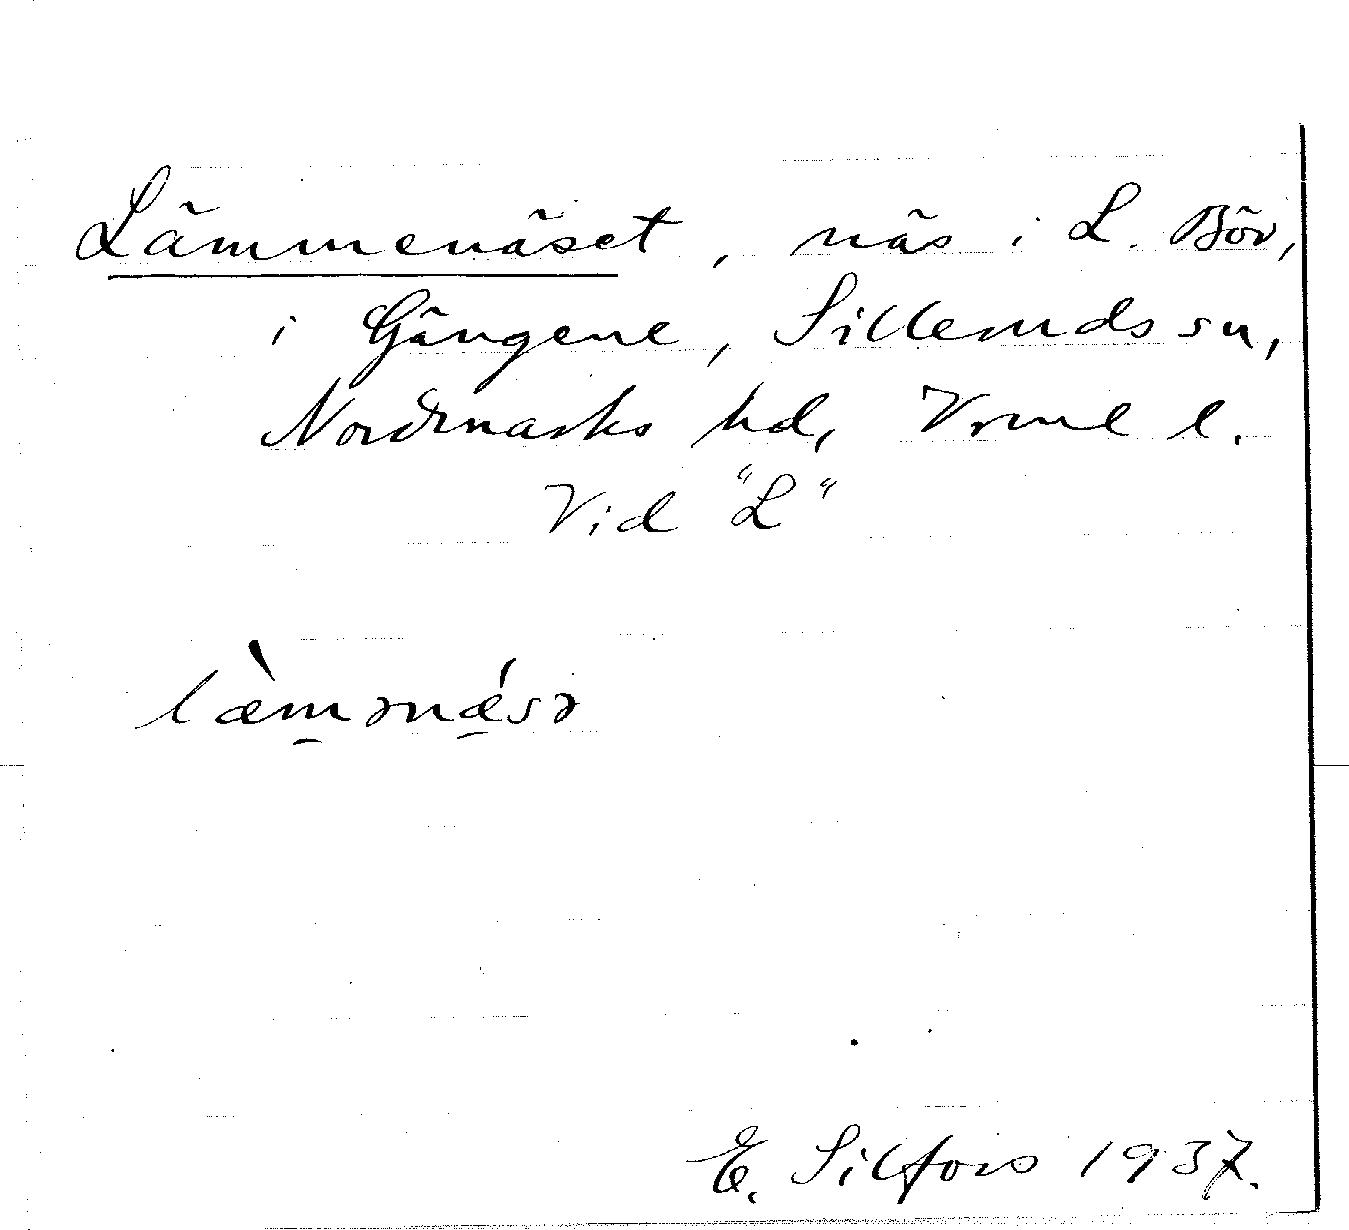 Lämmenäset, näs i L. Bör,
i Gängene, Sillemds sn,
Nordmarks hd, Vrml l.
Vid "L"
læ̀mənǽsə
E. Silfors 1937.